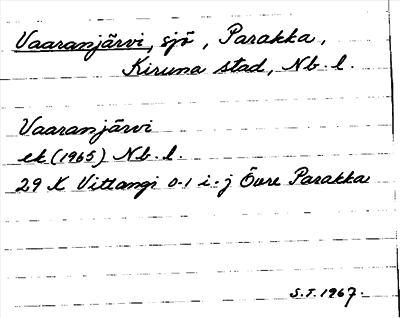 Vaaranjärvi, sjö, Parakka,
Kiruna stad, Nb. l.
Vaaranjärvi
ek (1965) Nb. l.
29 K Vittangi 0-1 i-j Övre Parakka
S.T. 1967.